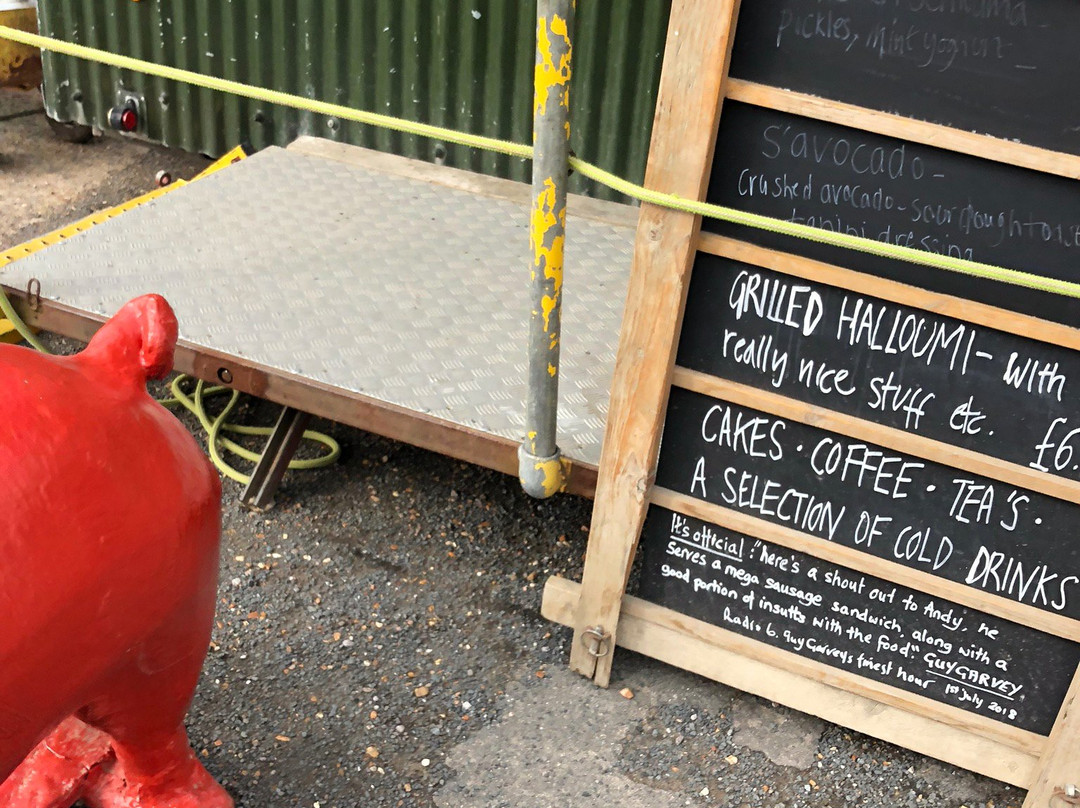 pickles, Mint yogurt
S'avocado -
Crushed avocado - sourdough toast
tahini dressing
GRILLED HALLOUMI - with
really nice stuff etc. £6.
CAKES · COFFEE · TEA'S ·
A SELECTION OF COLD DRINKS
It's official : "here's a shout out to Andy, he
Serves a mega sausage sandwich, along with a
good portion of insults with the food". GUY GARVEY.
Radio 6. Guy Garvey's finest hour 1st July 2018